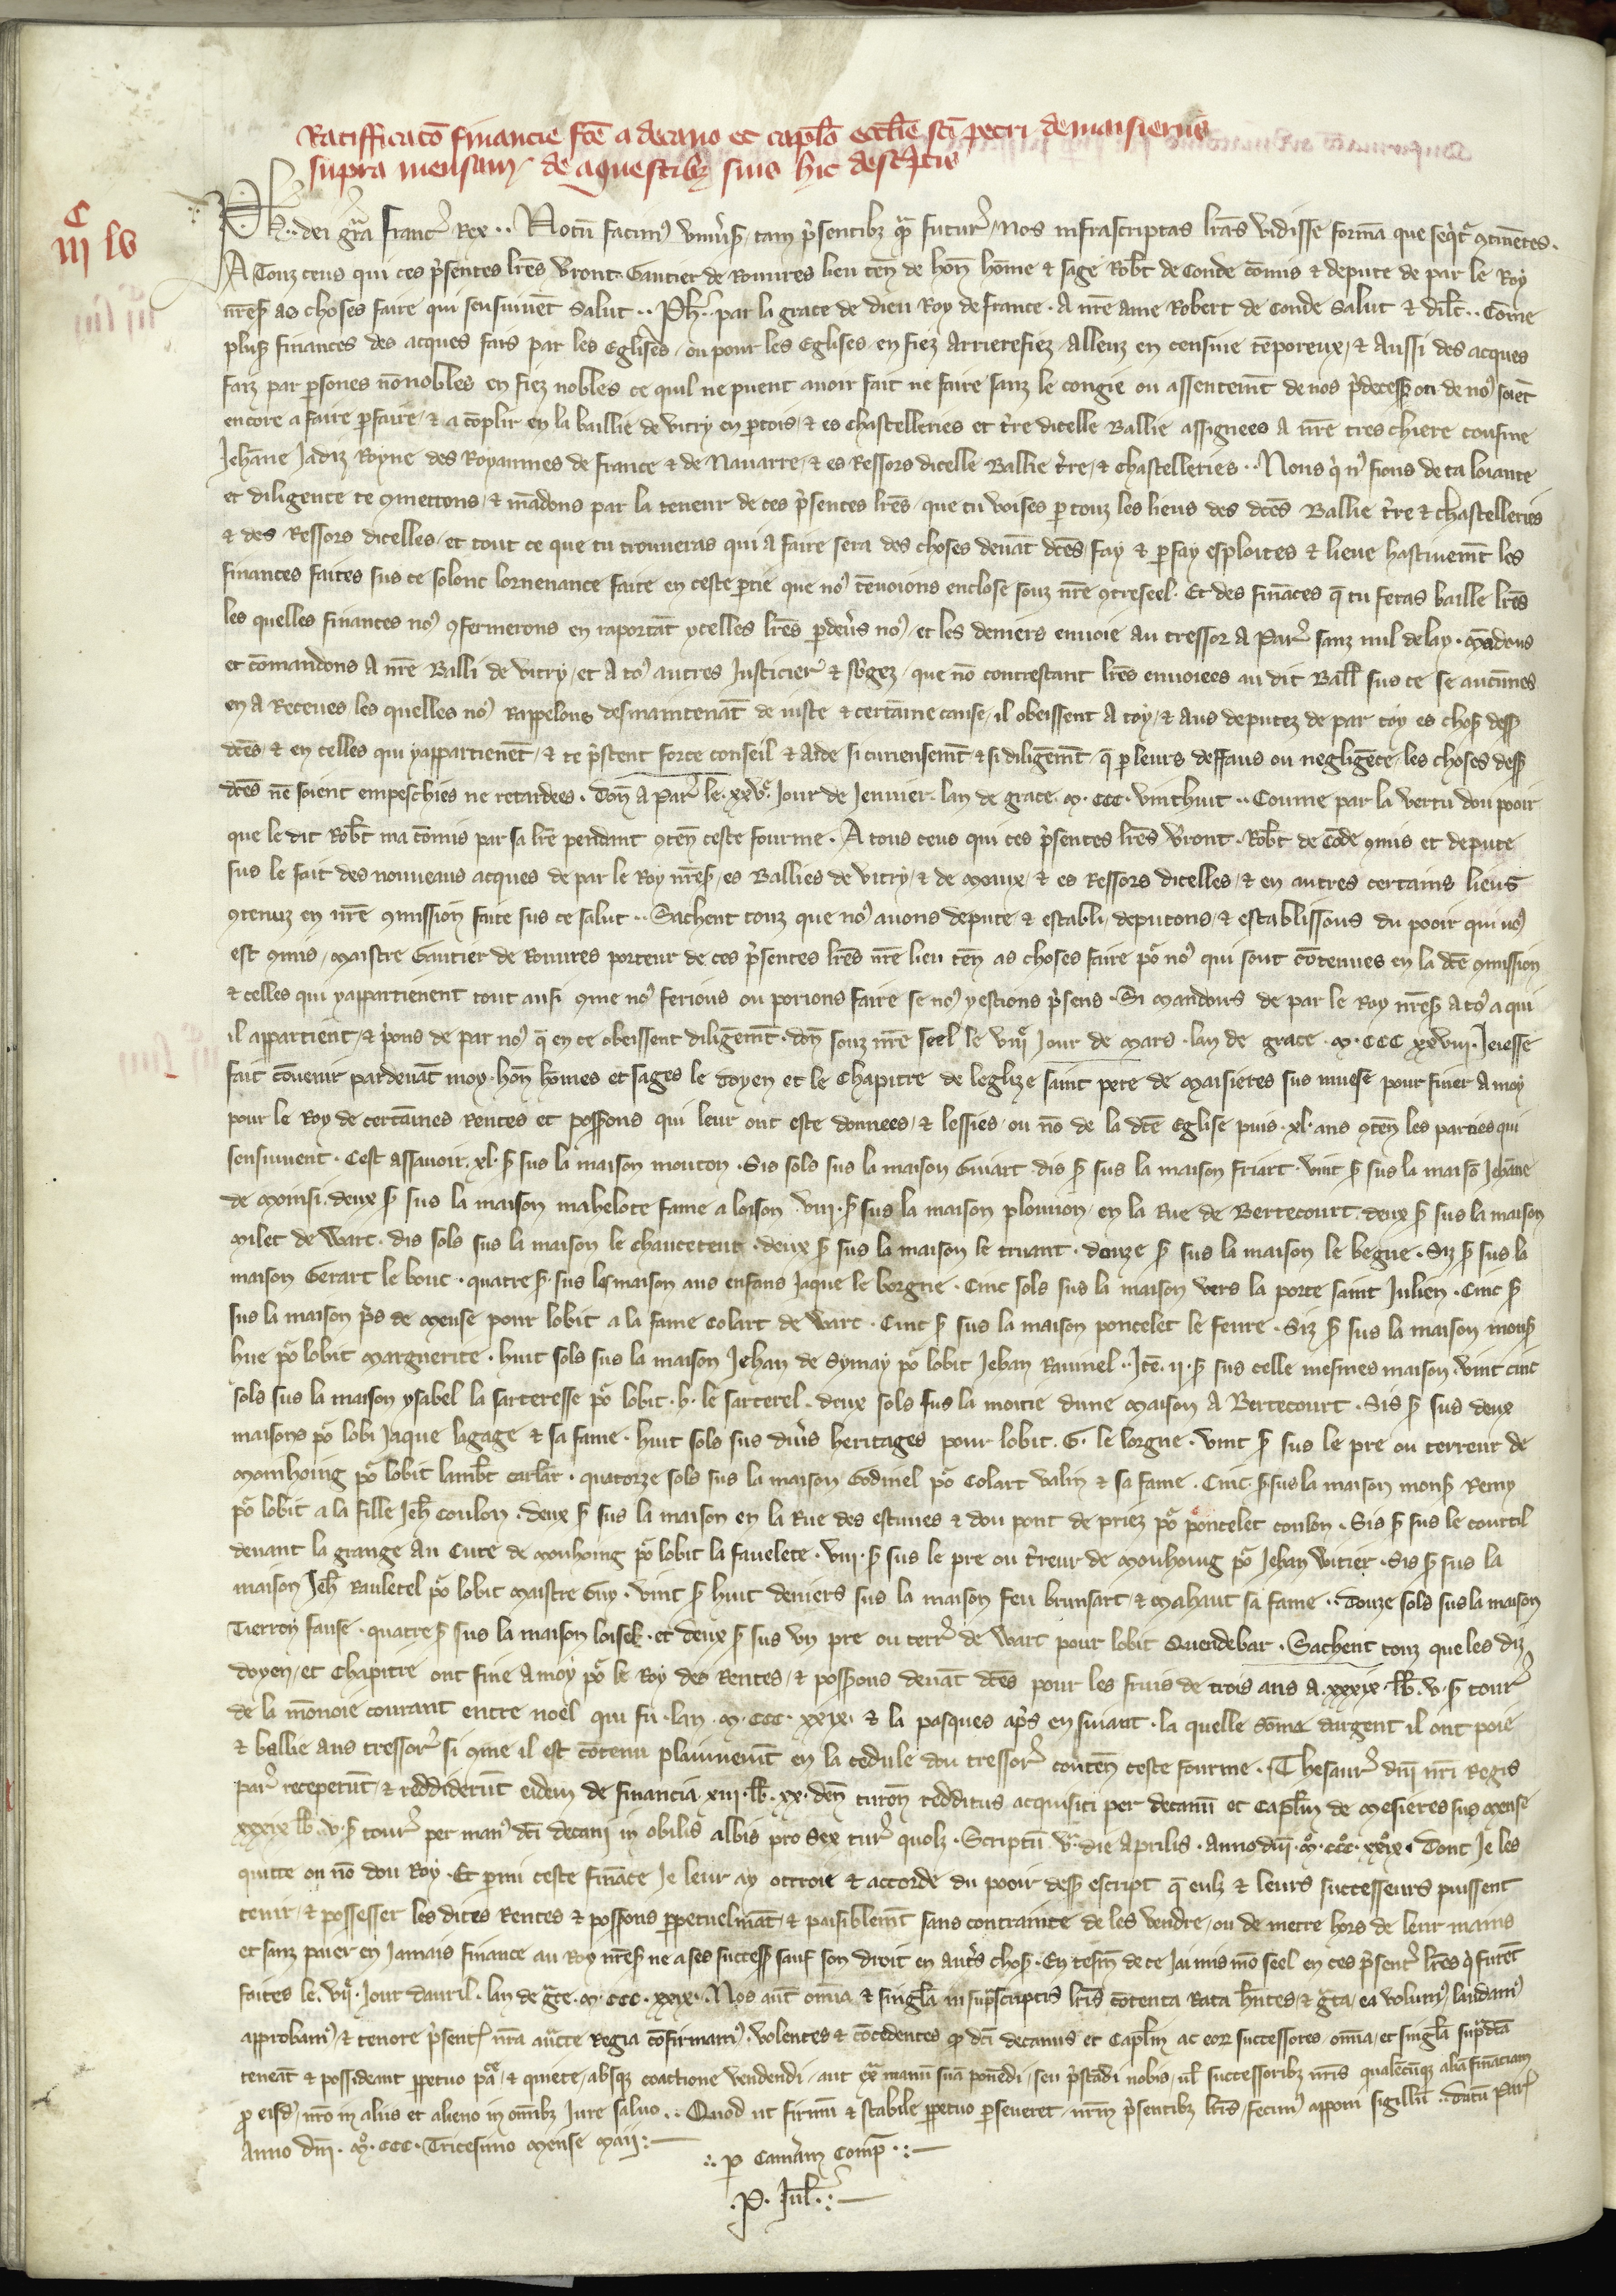 Ratifficacõ financie fce a decano et caplo ecclie sci petri de maisieriis
supra mensam de aquestibz suis hic descptis
C
iii lv
Ph. dei gra franc Rex .. Notu facim univsis tam psentibz qm futur Nos infrascriptas lras vidisse forma que seqtr gtinetes.
A Touz ceus qui ces psentes lres vront Gautier de Rouures lieu ten de hon home & sage Robt de Conde comis & depute de par le Roy
nres as choses faire qui sensuiuet Salut .. Ph. par la grace de dieu Roy de france . A nre ame Robert de Conde Salut & dilc .. Come
plus finances des acques fais par les Eglises ou pour les Eglises en fiez Arrierefiez Alleuz en censiue teporeux & Aussi des acques
faiz par psones nonobles en fiez nobles ce quil ne puent auoir fait ne faire sanz le congie ou assentemt de nos pdecess ou de no soiet
encore a faire pfaire & a coplir en la baillie de vitry en ptois & es chastelleries et tre dicelle Ballie assignees A nre tres chiere cousine
Jehane Jadiz Royne des Royaumes de france & de Nauarre & es Ressors dicelle Ballie tre & chastelleries .. Nous q n fions de ta loiaute
et diligence te gmettons & madons par la teneur de ces psentes lres que tu voises p touz les lieus des dces Ballie tre & chastelleries
& des Ressors dicelles et tout ce que tu trouueras qui a faire sera des choses deuat dces fay & pfay esploites & lieue hastiuemt les
finances faites sus ce solonc lornenance faite en ceste ptie que no teuoions enclose souz nre gtreseel . Et des finaces q tu feras baille lres
les quelles finances no gfermerons en raportat ycelles lres pdeuers no et les deniers enuoie au tressor A Par sanz nul delay . Madons
et comandons A nre Balli de vitry et A to autres Justicier & sbgez que no contrestant lres enuoiees au dit Ball sus ce se aucunes
en A Receues les quelles no Rappelons desmaintenat de iuste & certaine cause il obeissent A toy & aus deputez de par toy es chos dess
dces & en celles qui yappartienet & te pstent force conseil & aide si curieusemt & si diligemt q p leurs deffaus ou negligece les choses dess
dces ne soient empeschies ne retardees . Don A Par le xxv Jour de Jenuier lan de grace M CCC vinthuit .. Coume par la vertu dou pooir
que le dit Robt ma comis par sa lre pendant gten ceste fourme . A tous ceus qui ces psentes lres vront Robt de Code gmis et depute
sus le fait des nouueaus acques de par le Roy nres es Ballies de vitry & de Meaux & es Ressors dicelles & en autres certains lieus
gtenuz en nre gmission faite sus ce salut .. Sachent touz que no auons depute & establi deputons & establissons du pooir qui no
est gmis Maistre Gautier de Rouures porteur de ces psentes lres nre lieu ten as choses faire po no qui sont cotenues en la dce gmission
& celles qui yappartienent tout ausi gme no ferions ou porions faire se no yestions psens . Si Mandons de par le Roy nres A to a qui
il appartient & pons de par no q en ce obeissent diligemt . don souz nre seel le viii Jour de Mars lan de grace M CCC xxviii . Jeiesse
fait couenir pardeuat moy hon homes et sages le doyen et le Chapitre de leglize saint pere de Maisieres sus muese pour finer A moy
pour le Roy de certaines Rentes et possons qui leur ont este donnees & lessies ou no de la dce Eglise puis xl ans gten les parties qui
sensuiuent . Cest assauoir xl s sus la maison mouton . Sis sols sus la maison Guiart dis s sus la maison friart . vint s sus la maiso Jehane
de moinsi . deux s sus la maison mabelote fame a loison viii s sus la maison plouuion en la Rue de Bertecourt . deux s sus la maison
Milet de Warc . dis sols sus la maison le chauceteur . deux s sus la maison le truant . douze s sus la maison le begue . Siz s sus la
maison Gerart le bouc . quatre s sus les maison aus enfans Jaque le borgne . Cinc sols sus la maison vers la porte saint Julien . Cinc s
sus la maison ps de Meuse pour lobit a la fame Colart de Warc . Cinc s sus la maison poncelet le feure . Siz s sus la maison mons
hue po lobit Marguerite . huit sols sus la maison Jehan de Symay po lobit Jehan Rauinel .. Ite ii s sus celle mesmes maison . vint cinc
sols sus la maison ysabel la sarteresse po lobit h. le sarterel . deux sols sus la moitie dune Maison A Bertecourt . Sis s sus deux
maisons po lobi Jaque lagage & sa fame . huit sols sus divs heritages pour lobit G. le lorgne . vint s sus le pre ou terreur de
Monhoing po lobit lambt carlat . quatorze sols sus la maison Godinel po Colart valin & sa fame . Cinc s sus la maison mons Remy
po lobit a la fille Jeh coulon . deux s sus la maison en la Rue des estuues & dou pont de priez po poncelet coulon . Sis s sus le courtil
deuant la grange Au Cure de Monhoing po lobit la fauelete . viii s sus le pre ou treur de Monhoing po Jehan Witier . Sis s sus la
maison Jeh Raulecel po lobit Maistre Guy . vint s huit deniers sus la maison feu brunsart & Mahaut sa fame .. douze sols sus la maison
Tierroy fause . quatre s sus la maison loisel . et deux s sus vn pre ou terr de Warc pour lobit Quendebar . Sachent touz que les diz
doyen et Chapitre ont fine A moy po le Roy des Rentes & possons deuat dces pour les fruis de trois ans A xxxix lb v s tour
de la monoie courant entre noel qui fu lan M CCC xxix & la pasques aps ensuiant . la quelle some dargent il ont poie
& ballie aus tressor si gme il est cotenu plainnemt en la cedule dou tressor conten ceste fourme . Thesaur dni nri Regis
Par receperut & reddiderut eidem de financia xiii lb xx den turon redditus acquisiti per decanu et Caplm de Mesieres sus Meuse
xxxix lb v s tour per man dci decani in obilis albis pro sex tur quolz . Scriptu v die Aprilis Anno dni M CCC xxix . dont Je les
quitte ou no dou Roy . Et pmi ceste finace Je leur ay ottroie & accorde du pooir dess escript q eulz & leurs successeurs puissent
tenir & possesser les dites Rentes & possons ppetuelmat & paisiblemt sans contrainte de les vendre ou de metre hors de leur mains
et sanz paier en Jamais finance au Roy nres ne a ses success sauf son droit en autrs chos . En tesm de ce Jai mis mo seel en ces psent lres q furet
faites le vii Jour dauril lan de gce M CCC xxix . Nos aut omia & singla in suprascriptis lris cotenta Rata hntes & gta ea volum laudam
approbam & tenore psent nra aucte Regia cofirmam . volentes & cocedentes q dci decanus et Caplm ac eor successores omia et singla supdca
teneat & possideant ppetuo pace & quiete absqz coactione vendendi aut ex manu sua ponedi seu pstadi nobis ul successoribz nris qualecuqz alia financiam
p eisd nro in aliis et alieno in omibz Jure saluo .. Quod ut firmu & stabile ppetuo pseueret nrm psentibz lris fecim apponi sigillu . datu Par
Anno dni M CCC Tricesimo Mense Maii
p Camam Comp
P. Jul.